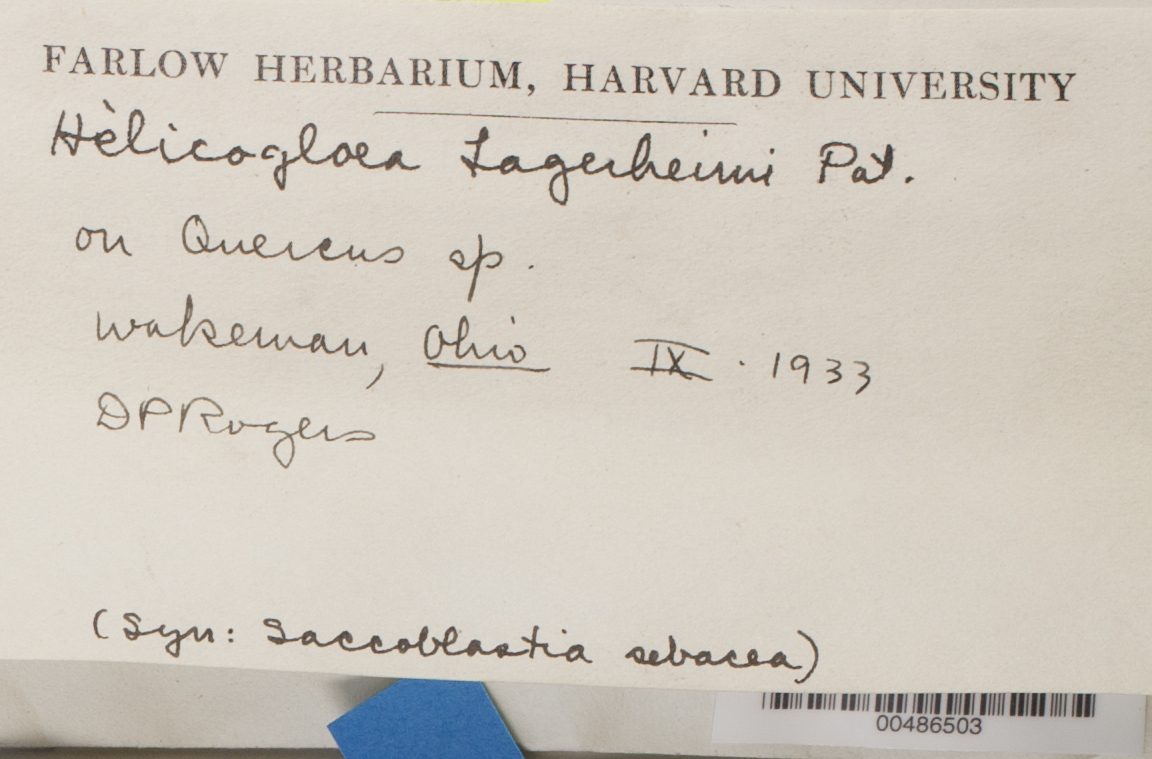 FARLOW HERBARIUM, HARVARD UNIVERSITY
Hèlicogloea Lagerheimi Pat.
on Quercus sp.
Wakeman, Ohio IX · 1933
DPRogers
(Syn: Saccoblastia sebacea)
00486503